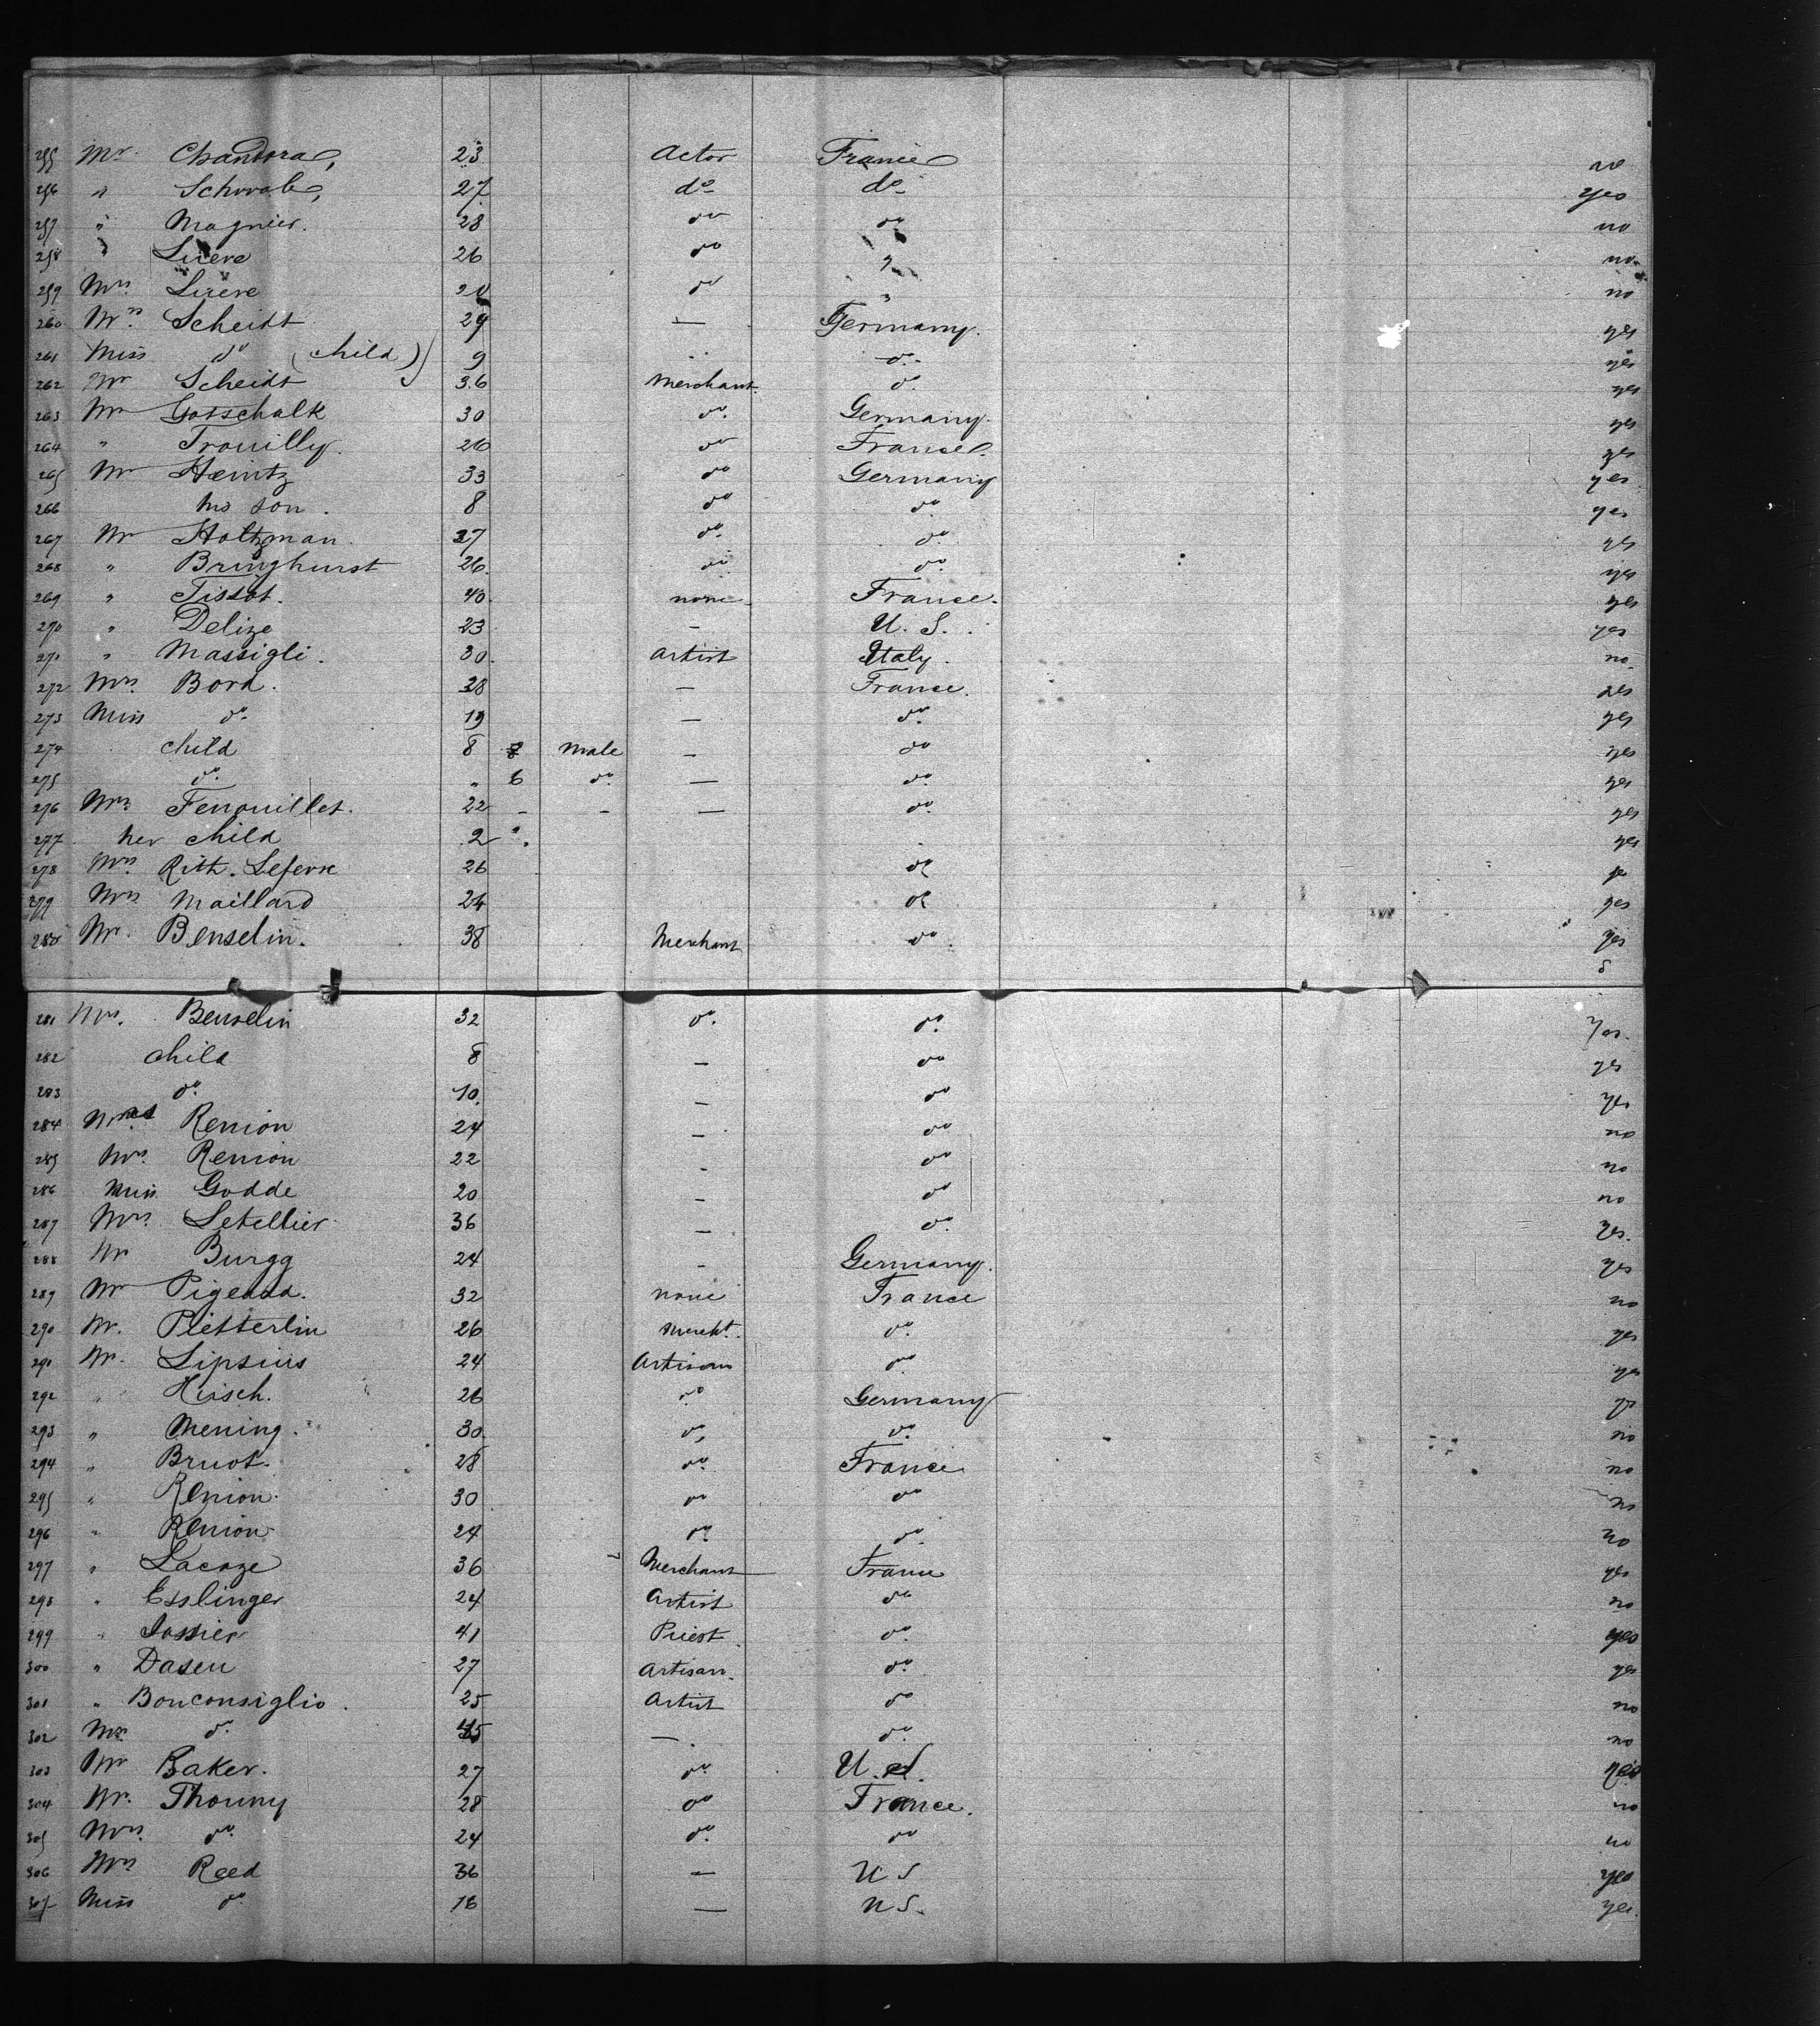 255 Mr Chandora, 23 Actor France no
256 " Schwab, 27 do do yes
257 " Magnier. 28 do do no
258 " Lucere 26 do " no
259 Mrs Lucere 20 do " no
260 Mrs Scheidt 29 — Germany. yes
261 Miss do (child) 9 " do. yes
262 Mr Scheidt 36 Merchant do. yes
263 Mr Gotschalk 30 do. Germany. yes
264 " Trouilly. 26 do France. yes
265 Mr Hentz 33 do Germany yes
266 his son. 8 do do yes
267 Mr Holtzman. 27 do. do. yes
268 " Bringhurst 26. do do. yes
269 " Tissot. 40. none France. yes
270 " Delize 23 — U. S. yes
271 " Massigli. 30. Artist Italy. no.
272 Mrs Bord. 28 — France. yes
273 Miss do. 19 — do. yes
274 child 8 Male — do yes
275 do. " 6 do. — do. yes
276 Mrs Fenouillet. 22 - - — do. yes
277 her child 2 yes
278 Mrs Rith. Lefevre 26 do
279 Mrs Maillard 24 do yes
280 Mr. Benselin. 38 Merchant do. yes
281 Mrs. Benselin 32 do. do. yes.
282 child 8 — do yes
283 do. 10. — do yes
284 Renion 24 — do no
285 Mrs. Renion 22 - do no
286 Miss Godde 20 - do no
287 Mrs. Letellier 36 — do. yes.
288 Mr Burgg 24 - Germany. yes
289 Mr Pigeaud. 32 none France no
290 Mr. Pietterlin 26 Mercht. do. yes
291 Mr. Lipsius 24 Artisan do yes
292 " Hirsch. 26 do Germany yes
293 " Mening. 30. do, do. no
294 " Bruot. 28 do. France no
295 " Renion. 30 do do no
296 " Renion 24 do do no
297 " Lacaze 36 Merchant France yes
298 " Esslinger 24 Artist do no
299 " Jossier 41 Priest do. yes
300 " Dasen 27 Artisan. do. yes
301 " Bonconsiglio. 25 Artist do no
302 do. — do. no
303 Mr Baker. 27 do. U. S. yes
304 Mr. Thouny 28 do France. no
305 Mrs. do. 24 do. do no
306 Mrs Reed 36 — U S yes
307 Miss do. 16 — U S. yes.